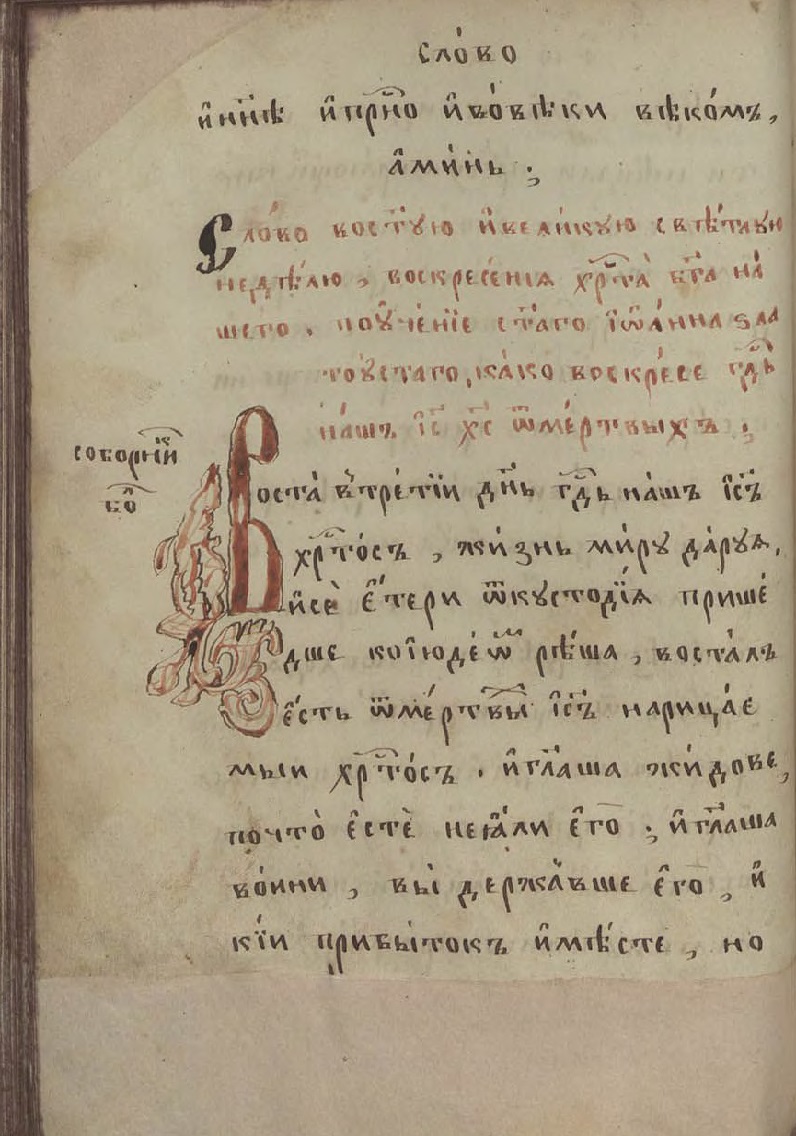 сло́во
и҆ нн҃ѣ и҆ при́сно и҆ во́вѣки вѣко́мъ,
а҆ми́нь ;
Сло́во восты́ую и҆вели́кую свѣ́тлую
недѣ́лю, воскресе́нїѧ хр҇та̀ бг҃а на́
шего, поꙋче́нїе ст҃а́го і҆ѡа́нна зла
тоу́стаго, ка́ко воскре́се гд҇ь
на́шъ і҆с҃ хс҃ ѿме́ртвыхъ ;
собо́рнїи
ко
Воста̀ в̾тре́тїи дн҃ь гд҇ь на́шъ і҆с҃ъ
хр҇то́съ, жи́знь ми́рꙋ да́рꙋѧ,
и҆сѐ є҆́тери ѿкꙋстоді́ѧ прише́
дше ко і҆юде́ѡм рѣ́ша, воста́лъ
є҆́сть ѿме́ртвы і҆с҃ъ нарица́е
мыи хр҇то́съ. и҆гл҃аша жи́дове,
почто̀ є҆стѐ неꙗ҆́ли є҆го̀ ; и҆гл҃аша
во́ини, вы̀ держа́вше є҆го̀, и҆
кі́и прибы́токъ и҆мѣ́сте, но